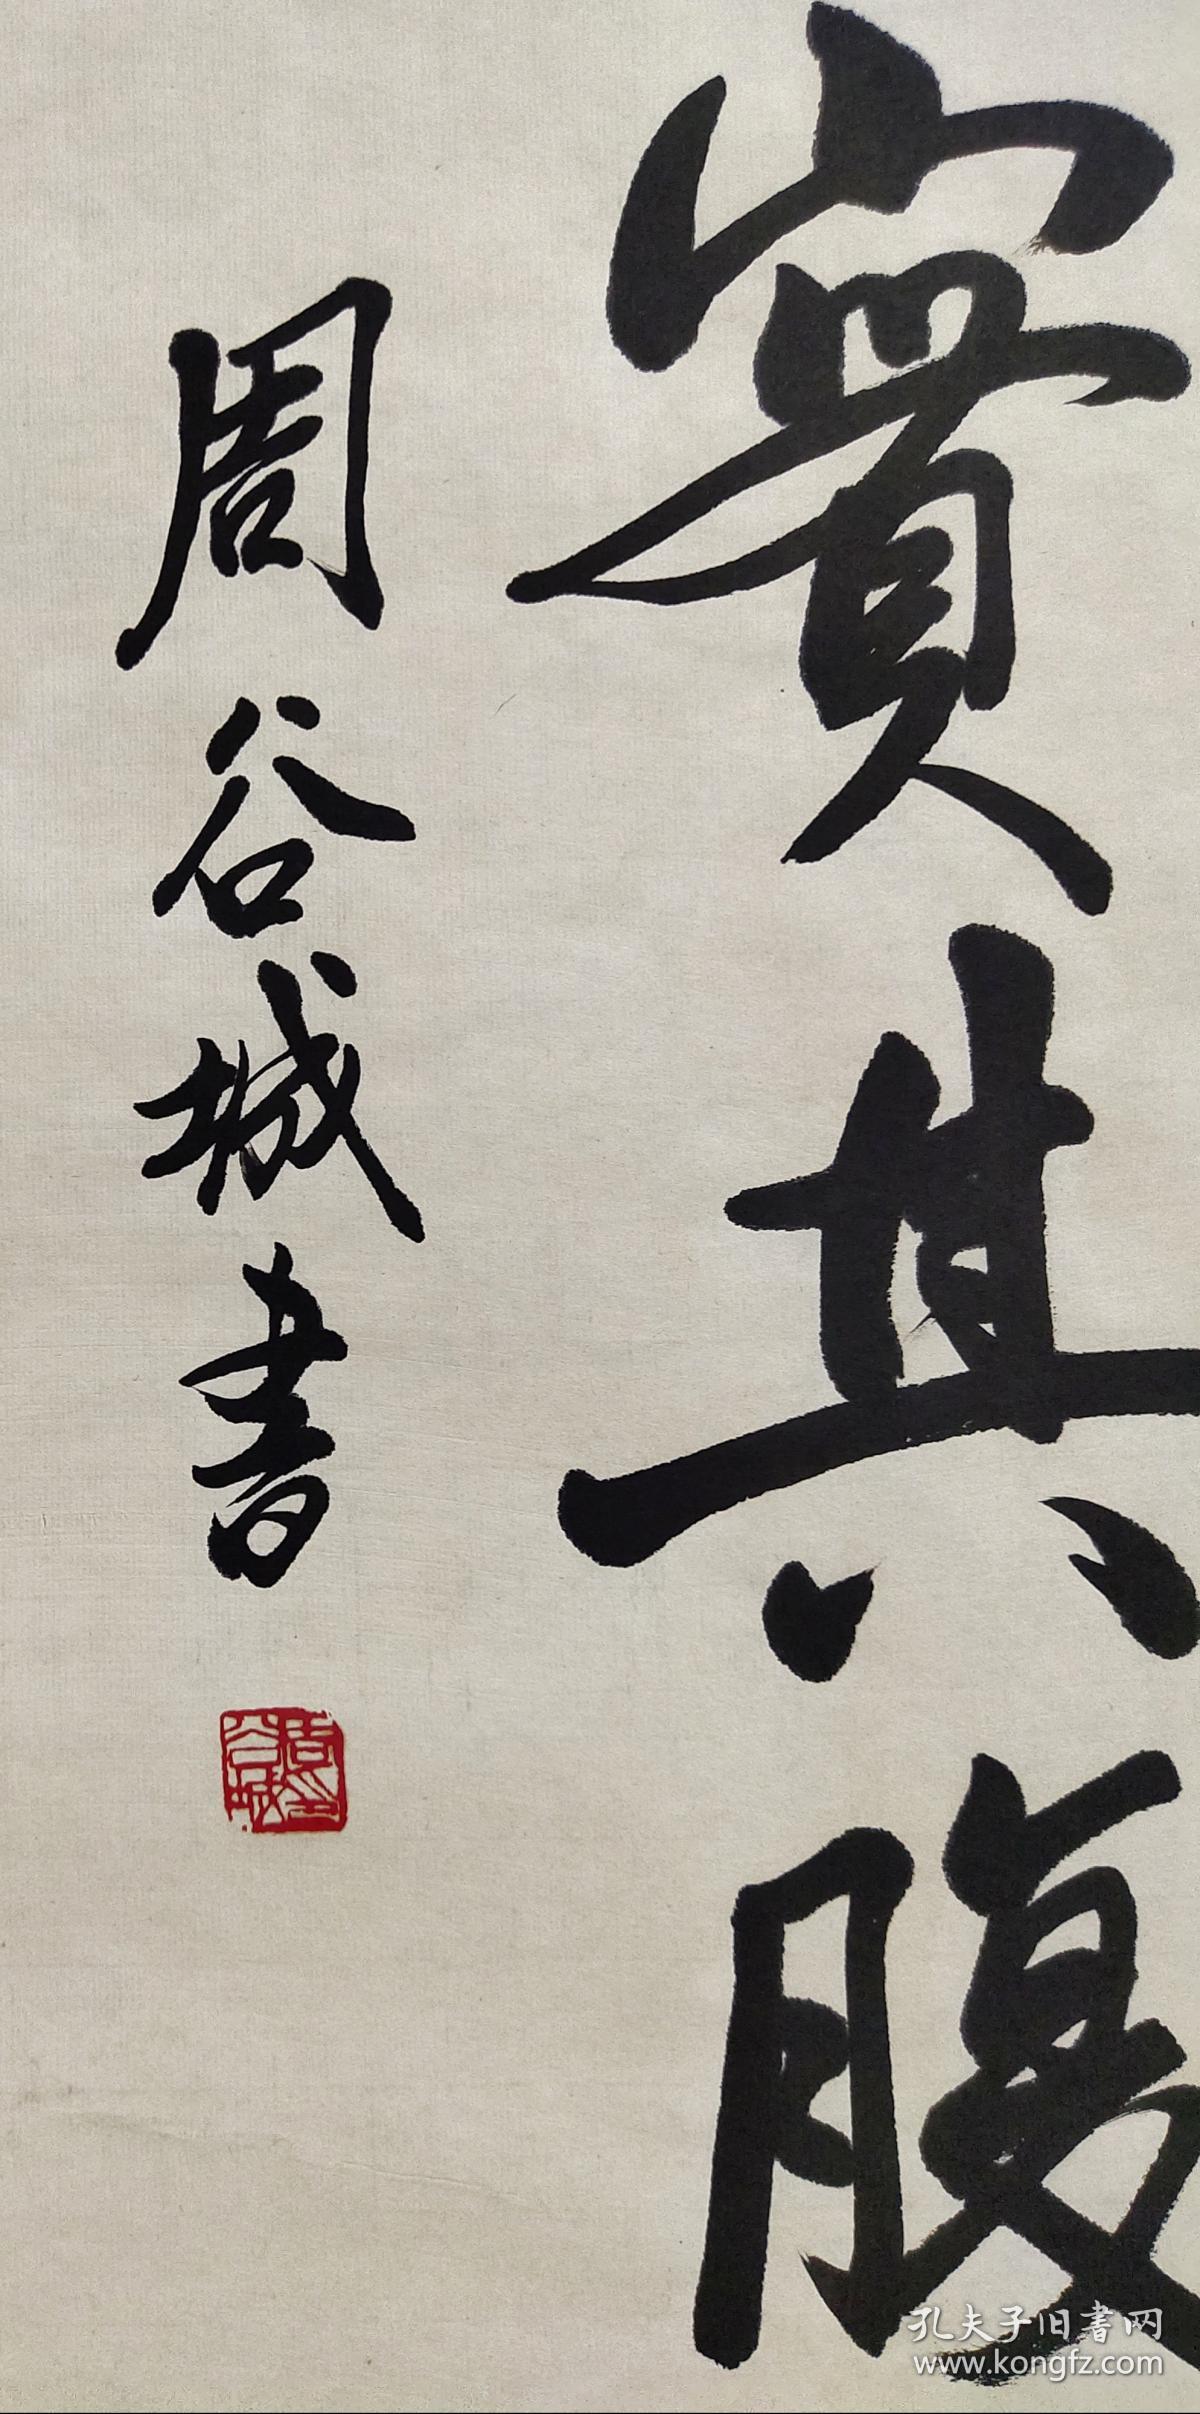 實其腹
周谷城書
周谷城印
孔夫子旧書网
www.kongfz.com